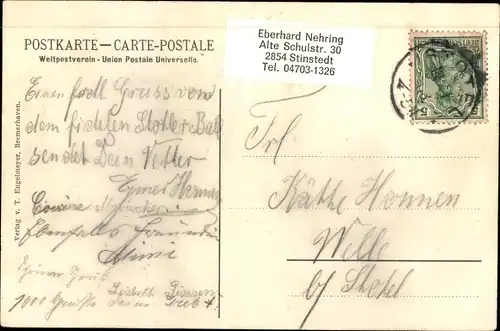 POSTKARTE — CARTE-POSTALE
Weltpostverein - Union Postale Universelle.
Eberhard Nehring
Alte Schulstr. 30
2854 Stinstedt
Tel. 04703-1326
Verlag v. T. Engelmeyer, Bremerhaven.
Einen frdl. Gruss von
dem fidelen Stoteler Ball
sendet Dein Vetter
Cousine
Ebenfalls
Mimi
Lisbeth
1000 Grüsse
Frl.
Käthe Honnen
Welle
b/ Stotel